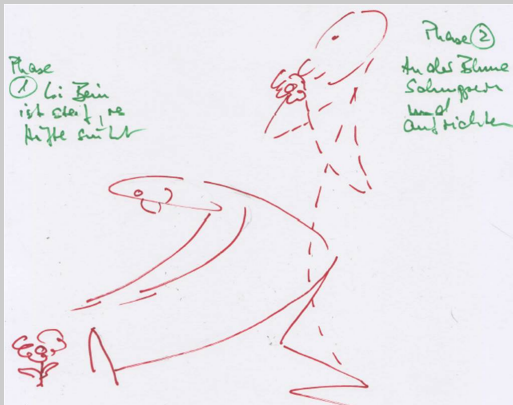 Phase
① Li Bein
ist steif, re
Hüfte sinkt
Phase ②
An der Blume
Schnuppern
und
aufrichten